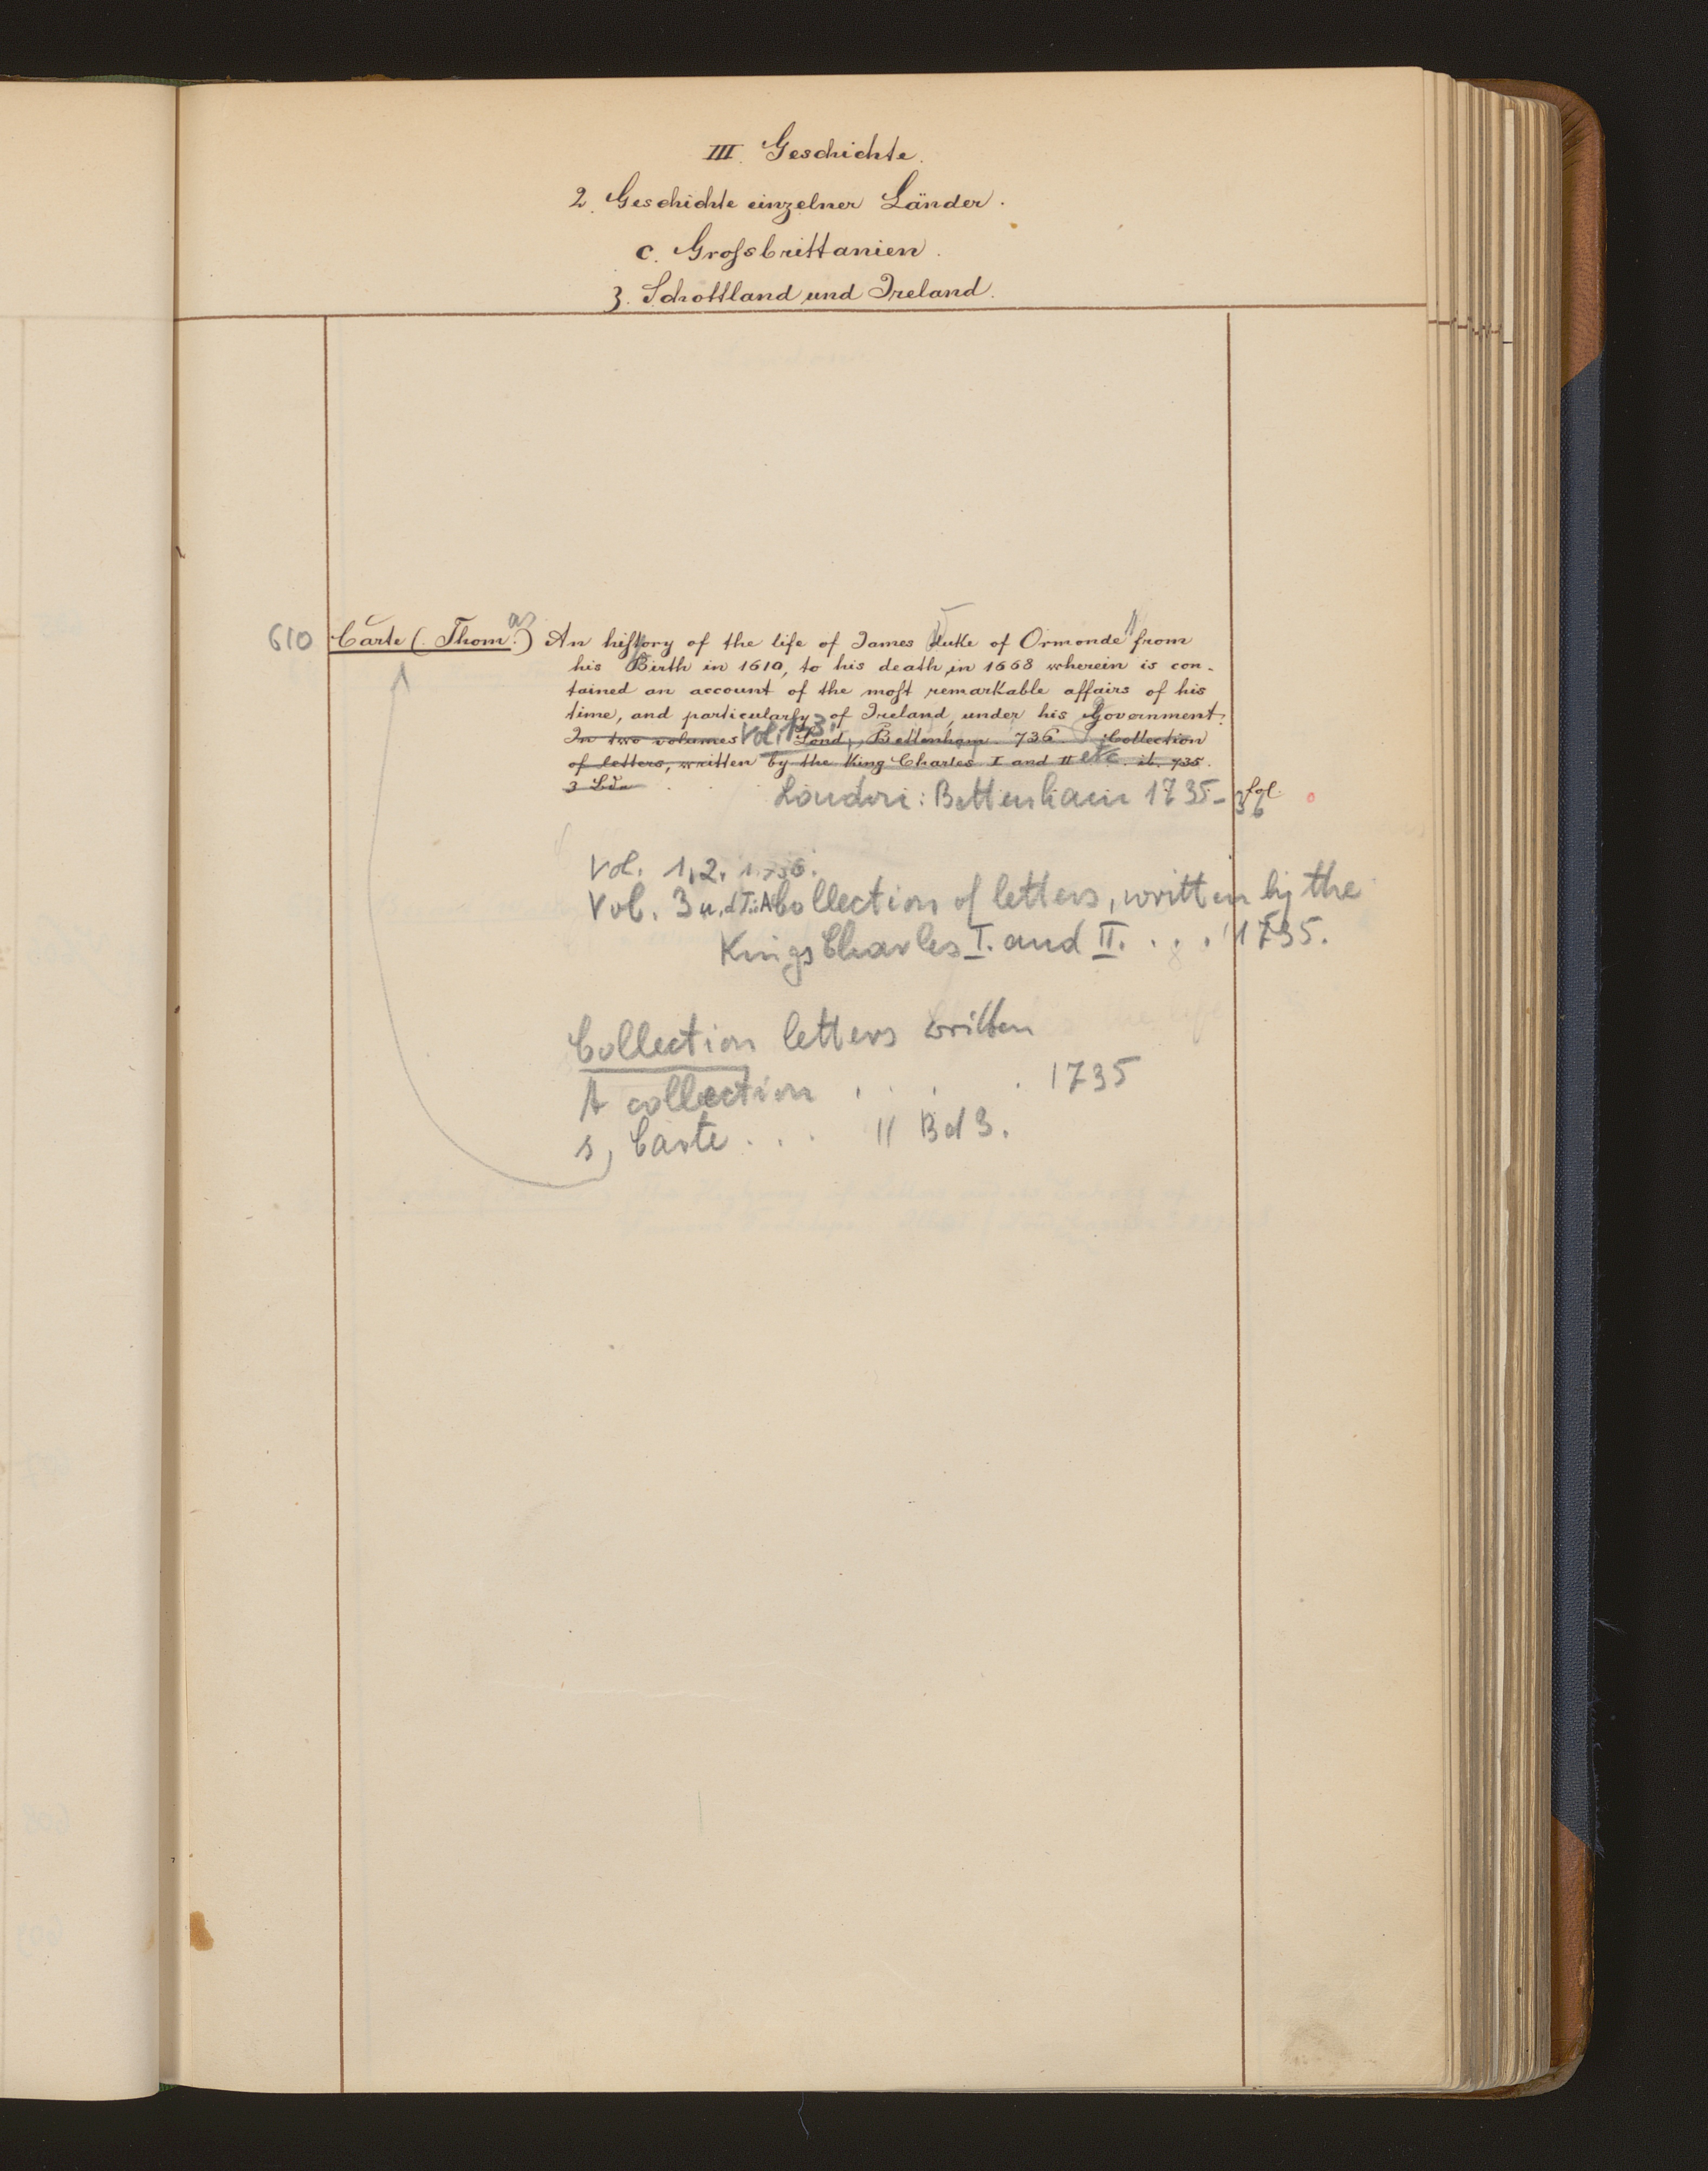 III. Geschichte.
2. Geschichte einzelner Länder.
c. Grossbrittanien.
3. Schottland und Ireland.
610 Carte (Thomas) An history of the life of James Duke of Ormonde from
his Birth in 1610, to his death in 1668 wherein is con-
tained an account of the most remarkable affairs of his
time, and particularly of Ireland, under his government.
In two volumes Vol. 1-3. Lond, Bettenham. 736. Collection
of letters, written by the King Charles I and II etc. ib. 735.
3 Bde
London: Bettenham 1735-36 fol.
Vol. 1,2. 1736.
Vol. 3 u. d. T.: A Collection of letters, written by the
Kings Charles I. and II. . . . 1735.
Collection letters written
A collection . . . . 1735
s, Carte . . . 11 Bd 3.